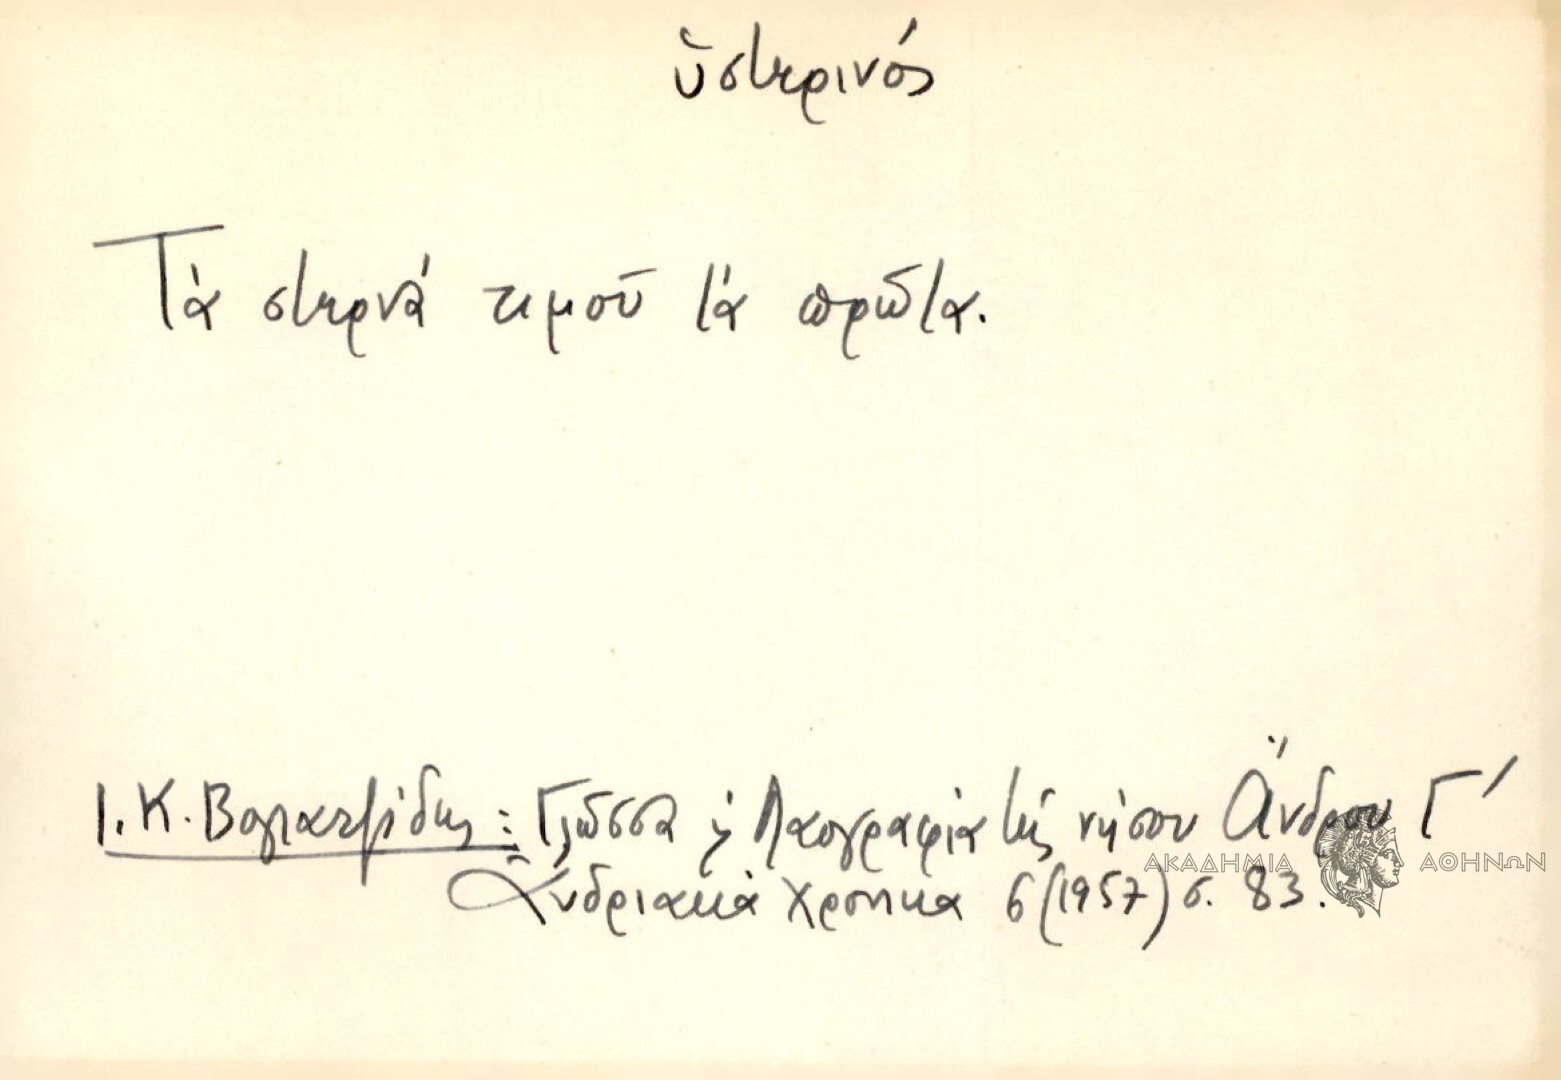 ὑστερινός
Τὰ στερνὰ τιμοῦν τὰ πρῶτα.
Ι. Κ. Βογιατζίδης: Γλῶσσα κ̀ Λαογραφία τῆς νήσου Ἄνδρου Γ΄
ΑΚΑΔΗΜΙΑ ΑΘΗΝΩΝ
Ἀνδριακὰ Χρονικα 6 (1957) σ. 83.